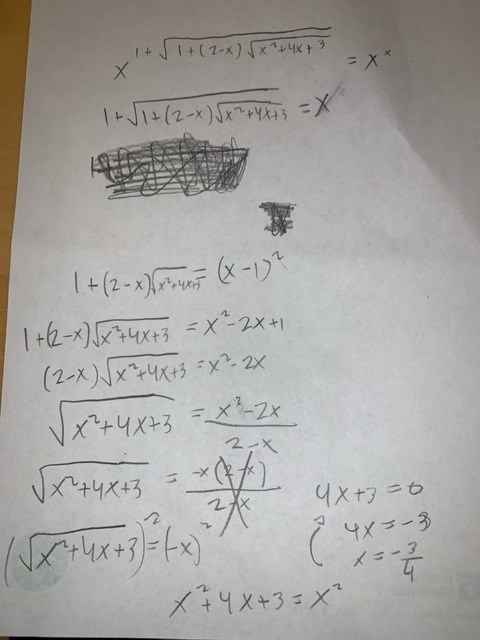 x^(1+√(1+(2-x)√(x²+4x+3))) = x^x
1+√(1+(2-x)√(x²+4x+3)) = x
1+(2-x)√(x²+4x+3) = (x-1)²
1+(2-x)√(x²+4x+3) = x²-2x+1
(2-x)√(x²+4x+3) = x²-2x
√(x²+4x+3) = (x²-2x)/(2-x)
√(x²+4x+3) = -x(2-x)/(2-x)
(√(x²+4x+3))² = (-x)²
x²+4x+3 = x²
4x+3 = 0
4x = -3
x = -3/4